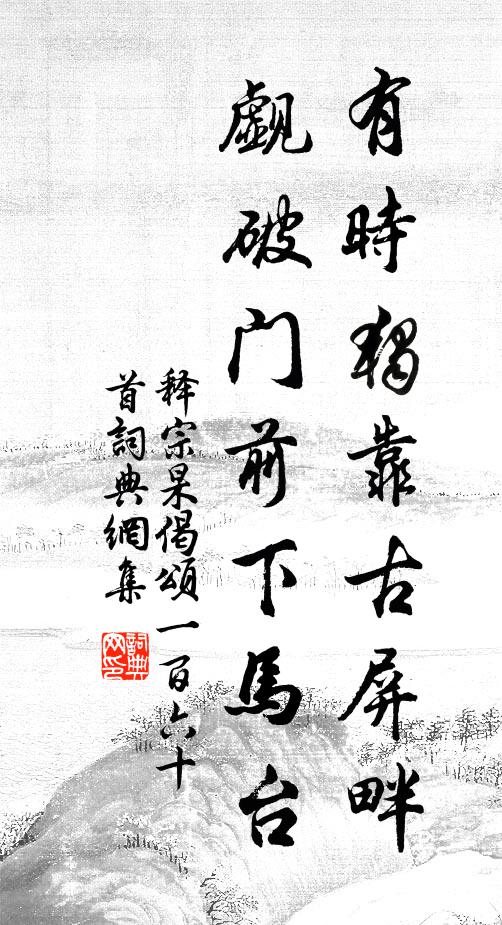 有時獨靠古屏畔
覷破門前下馬台
释宗杲偈頌一百六十
首詞典網集
詞典网印